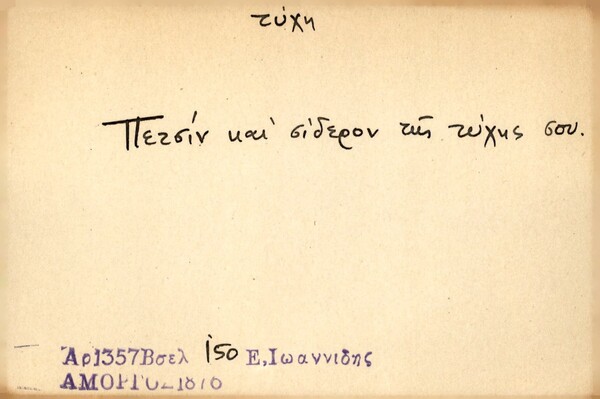 τύχη
Πετσίν καί σίδερον τῆς τύχης σου.
Ἀρ1357Βσελ 150 Ε,Ιωαννιδης
ΑΜΟΡΓΟΣ1876